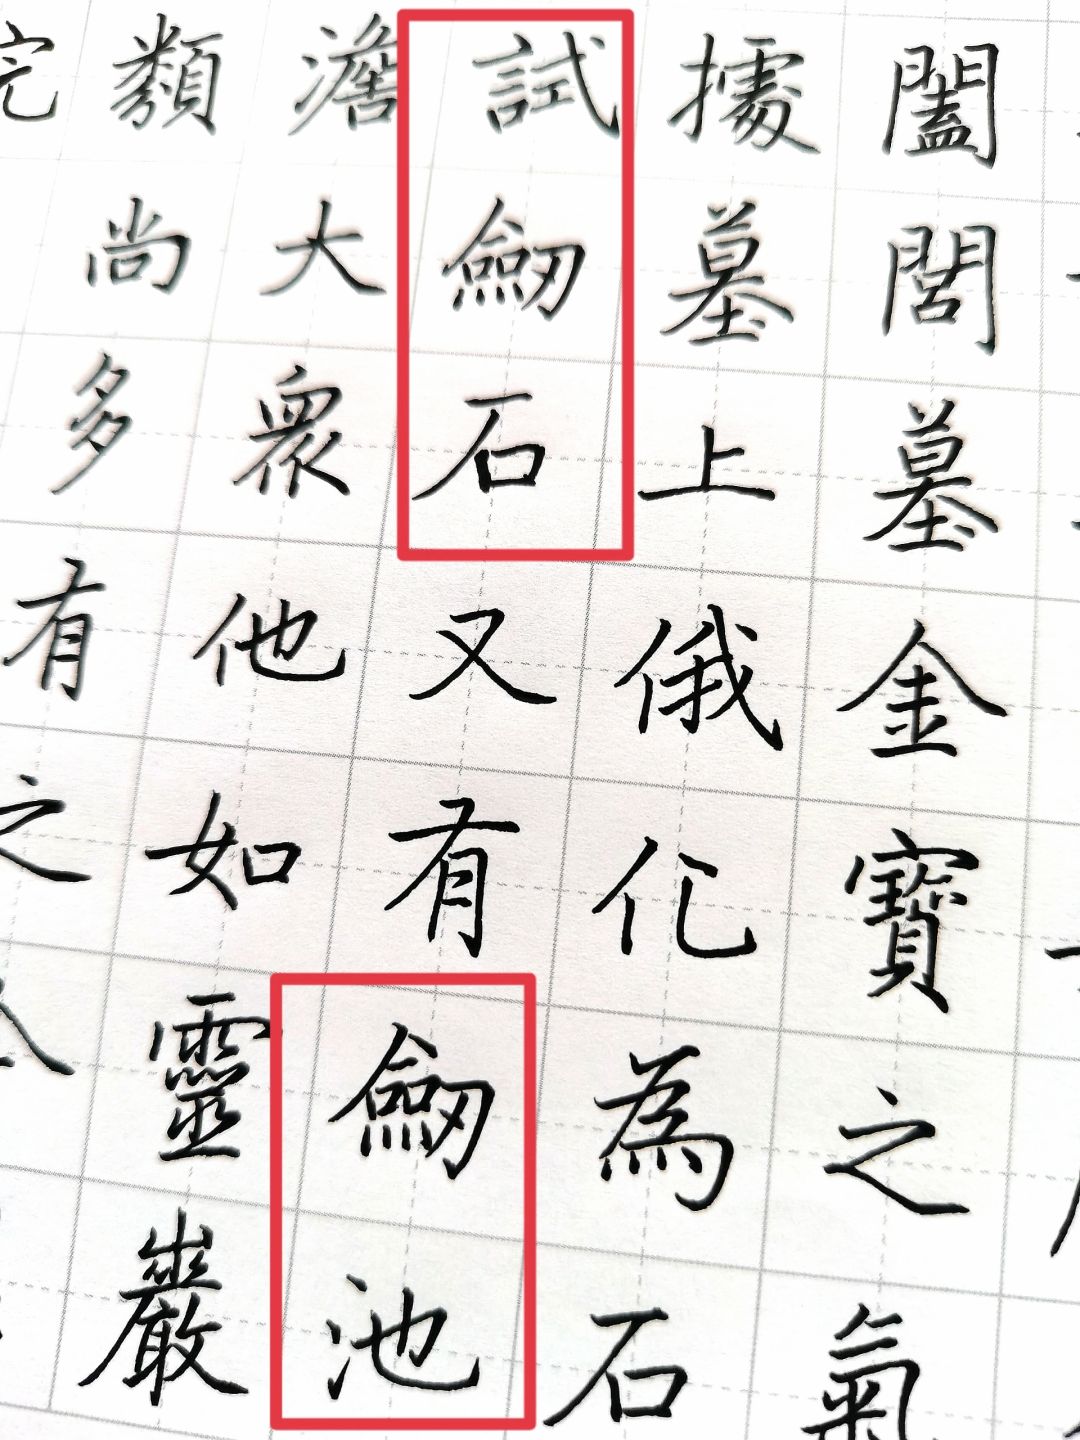 闔閭墓金寶之氣
據墓上俄化為石
試劒石又有劒池
澹大衆他如靈巖
類尚多有之
完